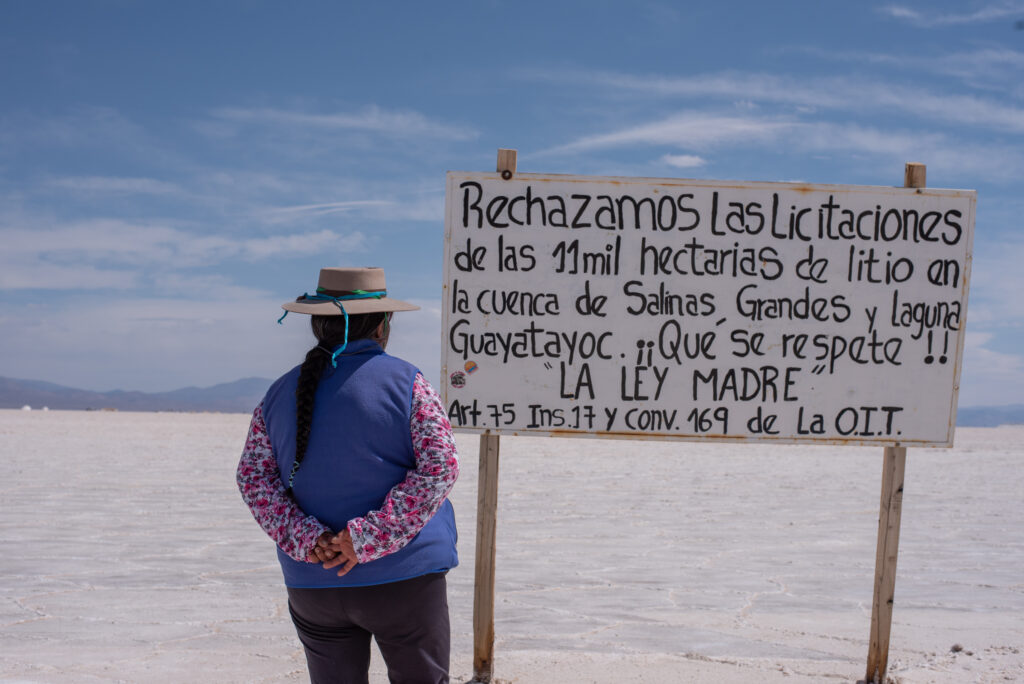 Rechazamos Las Licitaciones
de las 11 mil hectarias de litio en
la cuenca de Salinas Grandes y laguna
Guayatayoc. ¡¡Qué se respete!!
"LA LEY MADRE"
Art. 75 Ins. 17 y conv. 169 de La O.I.T.